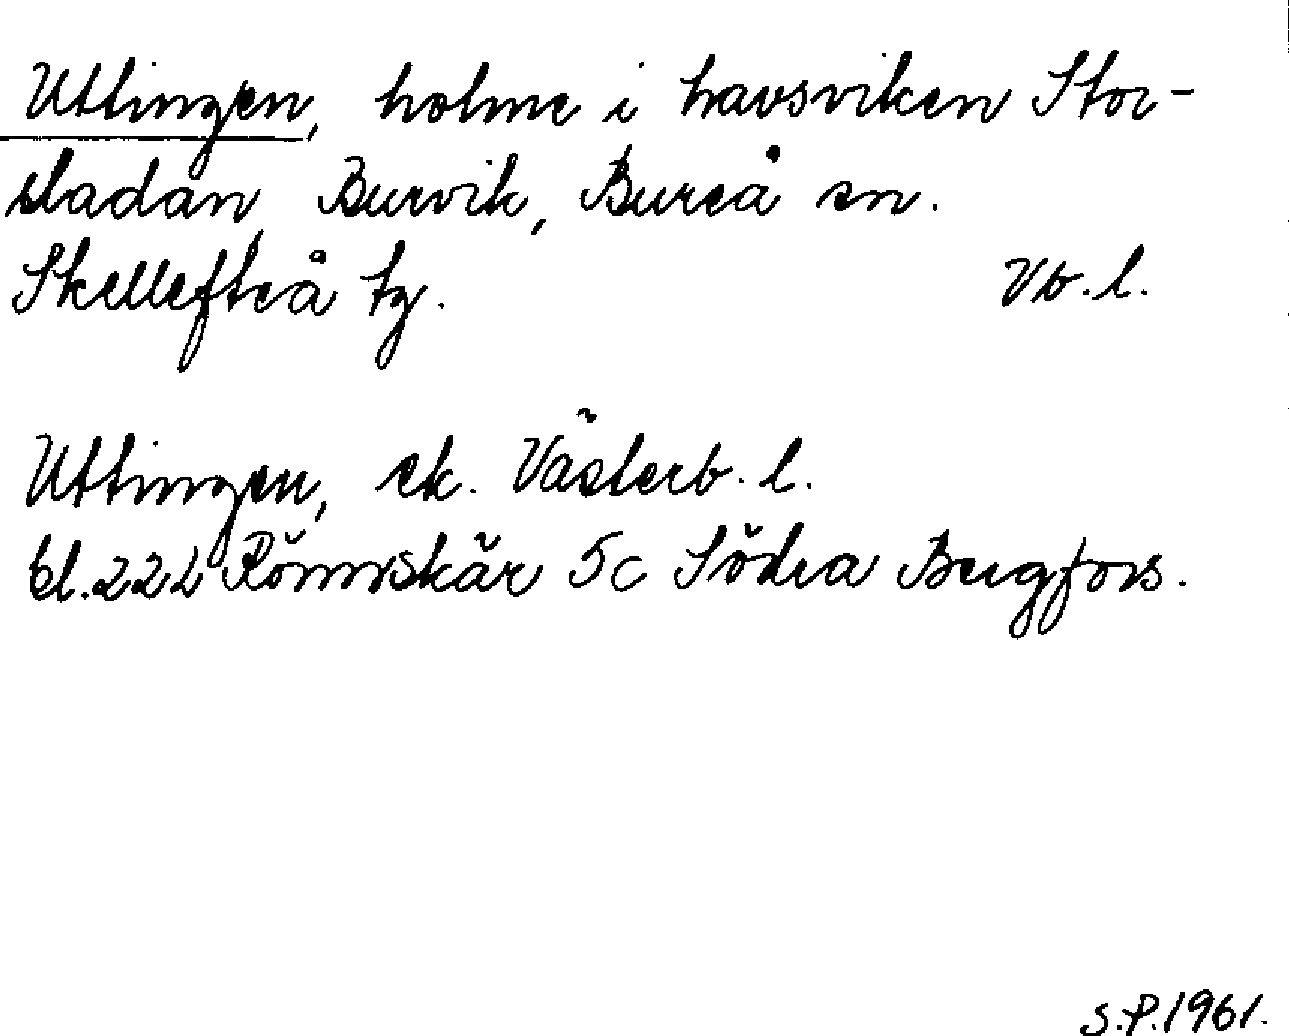 Utlingen, holme i havsviken Stor-
sladan, Burvik, Bureå sn.
Skellefteå tg. Vb. l.
Utlingen, ek. Västerb. l.
bl. 222 Rönnskär 5c Södra Bergfors.
S.P. 1961.